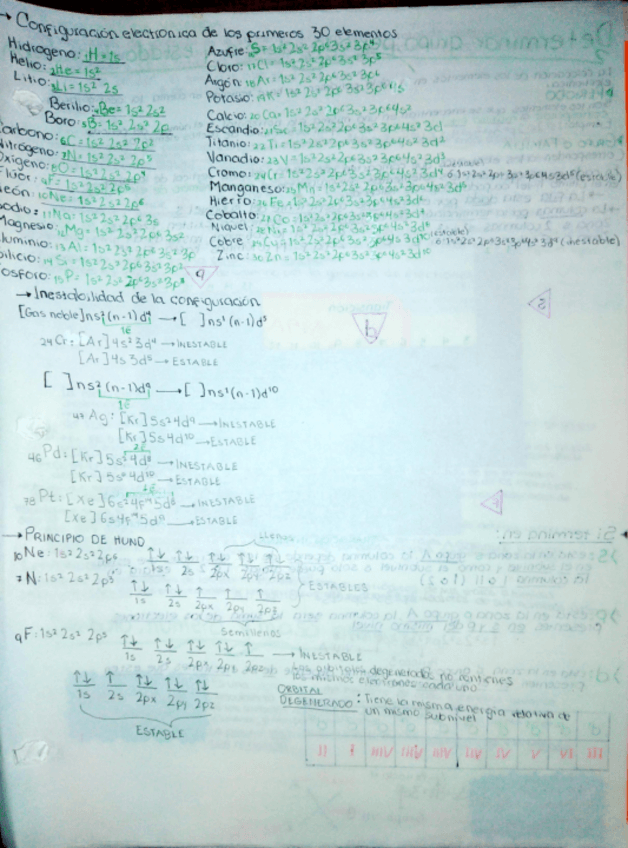 → Configuración electronica de los primeros 30 elementos
Hidrogeno: 1H = 1s
Helio: 2He = 1s²
Litio: 3Li = 1s² 2s
Berilio: 4Be = 1s² 2s²
Boro: 5B = 1s² 2s² 2p
Carbono: 6C = 1s² 2s² 2p²
Nitrógeno: 7N = 1s² 2s² 2p³
Oxígeno: 8O = 1s² 2s² 2p⁴
Fluor: 9F = 1s² 2s² 2p⁵
Neón: 10Ne = 1s² 2s² 2p⁶
Sodio: 11Na: 1s² 2s² 2p⁶ 3s
Magnesio: 12Mg = 1s² 2s² 2p⁶ 3s²
Aluminio: 13Al: 1s² 2s² 2p⁶ 3s² 3p
Silicio: 14Si = 1s² 2s² 2p⁶ 3s² 3p²
Fosforo: 15P = 1s² 2s² 2p⁶ 3s² 3p³
Azufre: S = 1s² 2s² 2p⁶ 3s² 3p⁴
Cloro: 17Cl = 1s² 2s² 2p⁶ 3s² 3p⁵
Argón: 18Ar = 1s² 2s² 2p⁶ 3s² 3p⁶
Potasio: 19K = 1s² 2s² 2p⁶ 3s² 3p⁶ 4s
Calcio: 20Ca = 1s² 2s² 2p⁶ 3s² 3p⁶ 4s²
Escandio: 21Sc = 1s² 2s² 2p⁶ 3s² 3p⁶ 4s² 3d
Titanio: 22Ti = 1s² 2s² 2p⁶ 3s² 3p⁶ 4s² 3d²
Vanadio: 23V = 1s² 2s² 2p⁶ 3s² 3p⁶ 4s² 3d³
Cromo: 24Cr = 1s² 2s² 2p⁶ 3s² 3p⁶ 4s² 3d⁴ ó 1s² 2s² 2p⁶ 3s² 3p⁶ 4s 3d⁵ (estable)
Manganeso: 25Mn = 1s² 2s² 2p⁶ 3s² 3p⁶ 4s² 3d⁵
Hierro: 26Fe = 1s² 2s² 2p⁶ 3s² 3p⁶ 4s² 3d⁶
Cobalto: 27Co = 1s² 2s² 2p⁶ 3s² 3p⁶ 4s² 3d⁷
Niquel: 28Ni = 1s² 2s² 2p⁶ 3s² 3p⁶ 4s² 3d⁸
Cobre: 29Cu = 1s² 2s² 2p⁶ 3s² 3p⁶ 4s 3d¹⁰ (estable) ó 1s² 2s² 2p⁶ 3s² 3p⁶ 4s² 3d⁹ (inestable)
Zinc: 30Zn = 1s² 2s² 2p⁶ 3s² 3p⁶ 4s² 3d¹⁰
→ Inestabilidad de la configuración
[Gas noble] ns² (n-1)d⁴ → [ ] ns¹ (n-1)d⁵
1e
24Cr: [Ar] 4s² 3d⁴ → INESTABLE
[Ar] 4s 3d⁵ → ESTABLE
[ ] ns² (n-1)d⁹ → [ ] ns¹ (n-1)d¹⁰
1e
47Ag: [Kr] 5s² 4d⁹ → INESTABLE
[Kr] 5s 4d¹⁰ → ESTABLE
2e
46Pd: [Kr] 5s² 4d⁸ → INESTABLE
[Kr] 5s⁰ 4d¹⁰ → ESTABLE
78Pt: [Xe] 6s² 4f¹⁴ 5d⁸ → INESTABLE
[Xe] 6s 4f¹⁴ 5d⁹ → ESTABLE
→ PRINCIPIO DE HUND
Llenos
10Ne: 1s² 2s² 2p⁶ ↑↓ ↑↓ ↑↓ ↑↓ ↑↓
1s 2s 2px 2py 2pz
7N: 1s² 2s² 2p³ ↑↓ ↑↓ ↑ ↑ ↑ ESTABLES
1s 2s 2px 2py 2pz
Semillenos
9F: 1s² 2s² 2p⁵ ↑↓ ↑↓ ↑↓ ↑↓ ↑ → INESTABLE
1s 2s 2px 2py 2pz
Los orbitales degenerados no contienen
los mismos electrones cada uno
↑↓ ↑ ↑↓ ↑↓ ↑↓
1s 2s 2px 2py 2pz
ESTABLE
ORBITAL
DEGENERADO: Tiene la misma energía relativa de
un mismo subnivel